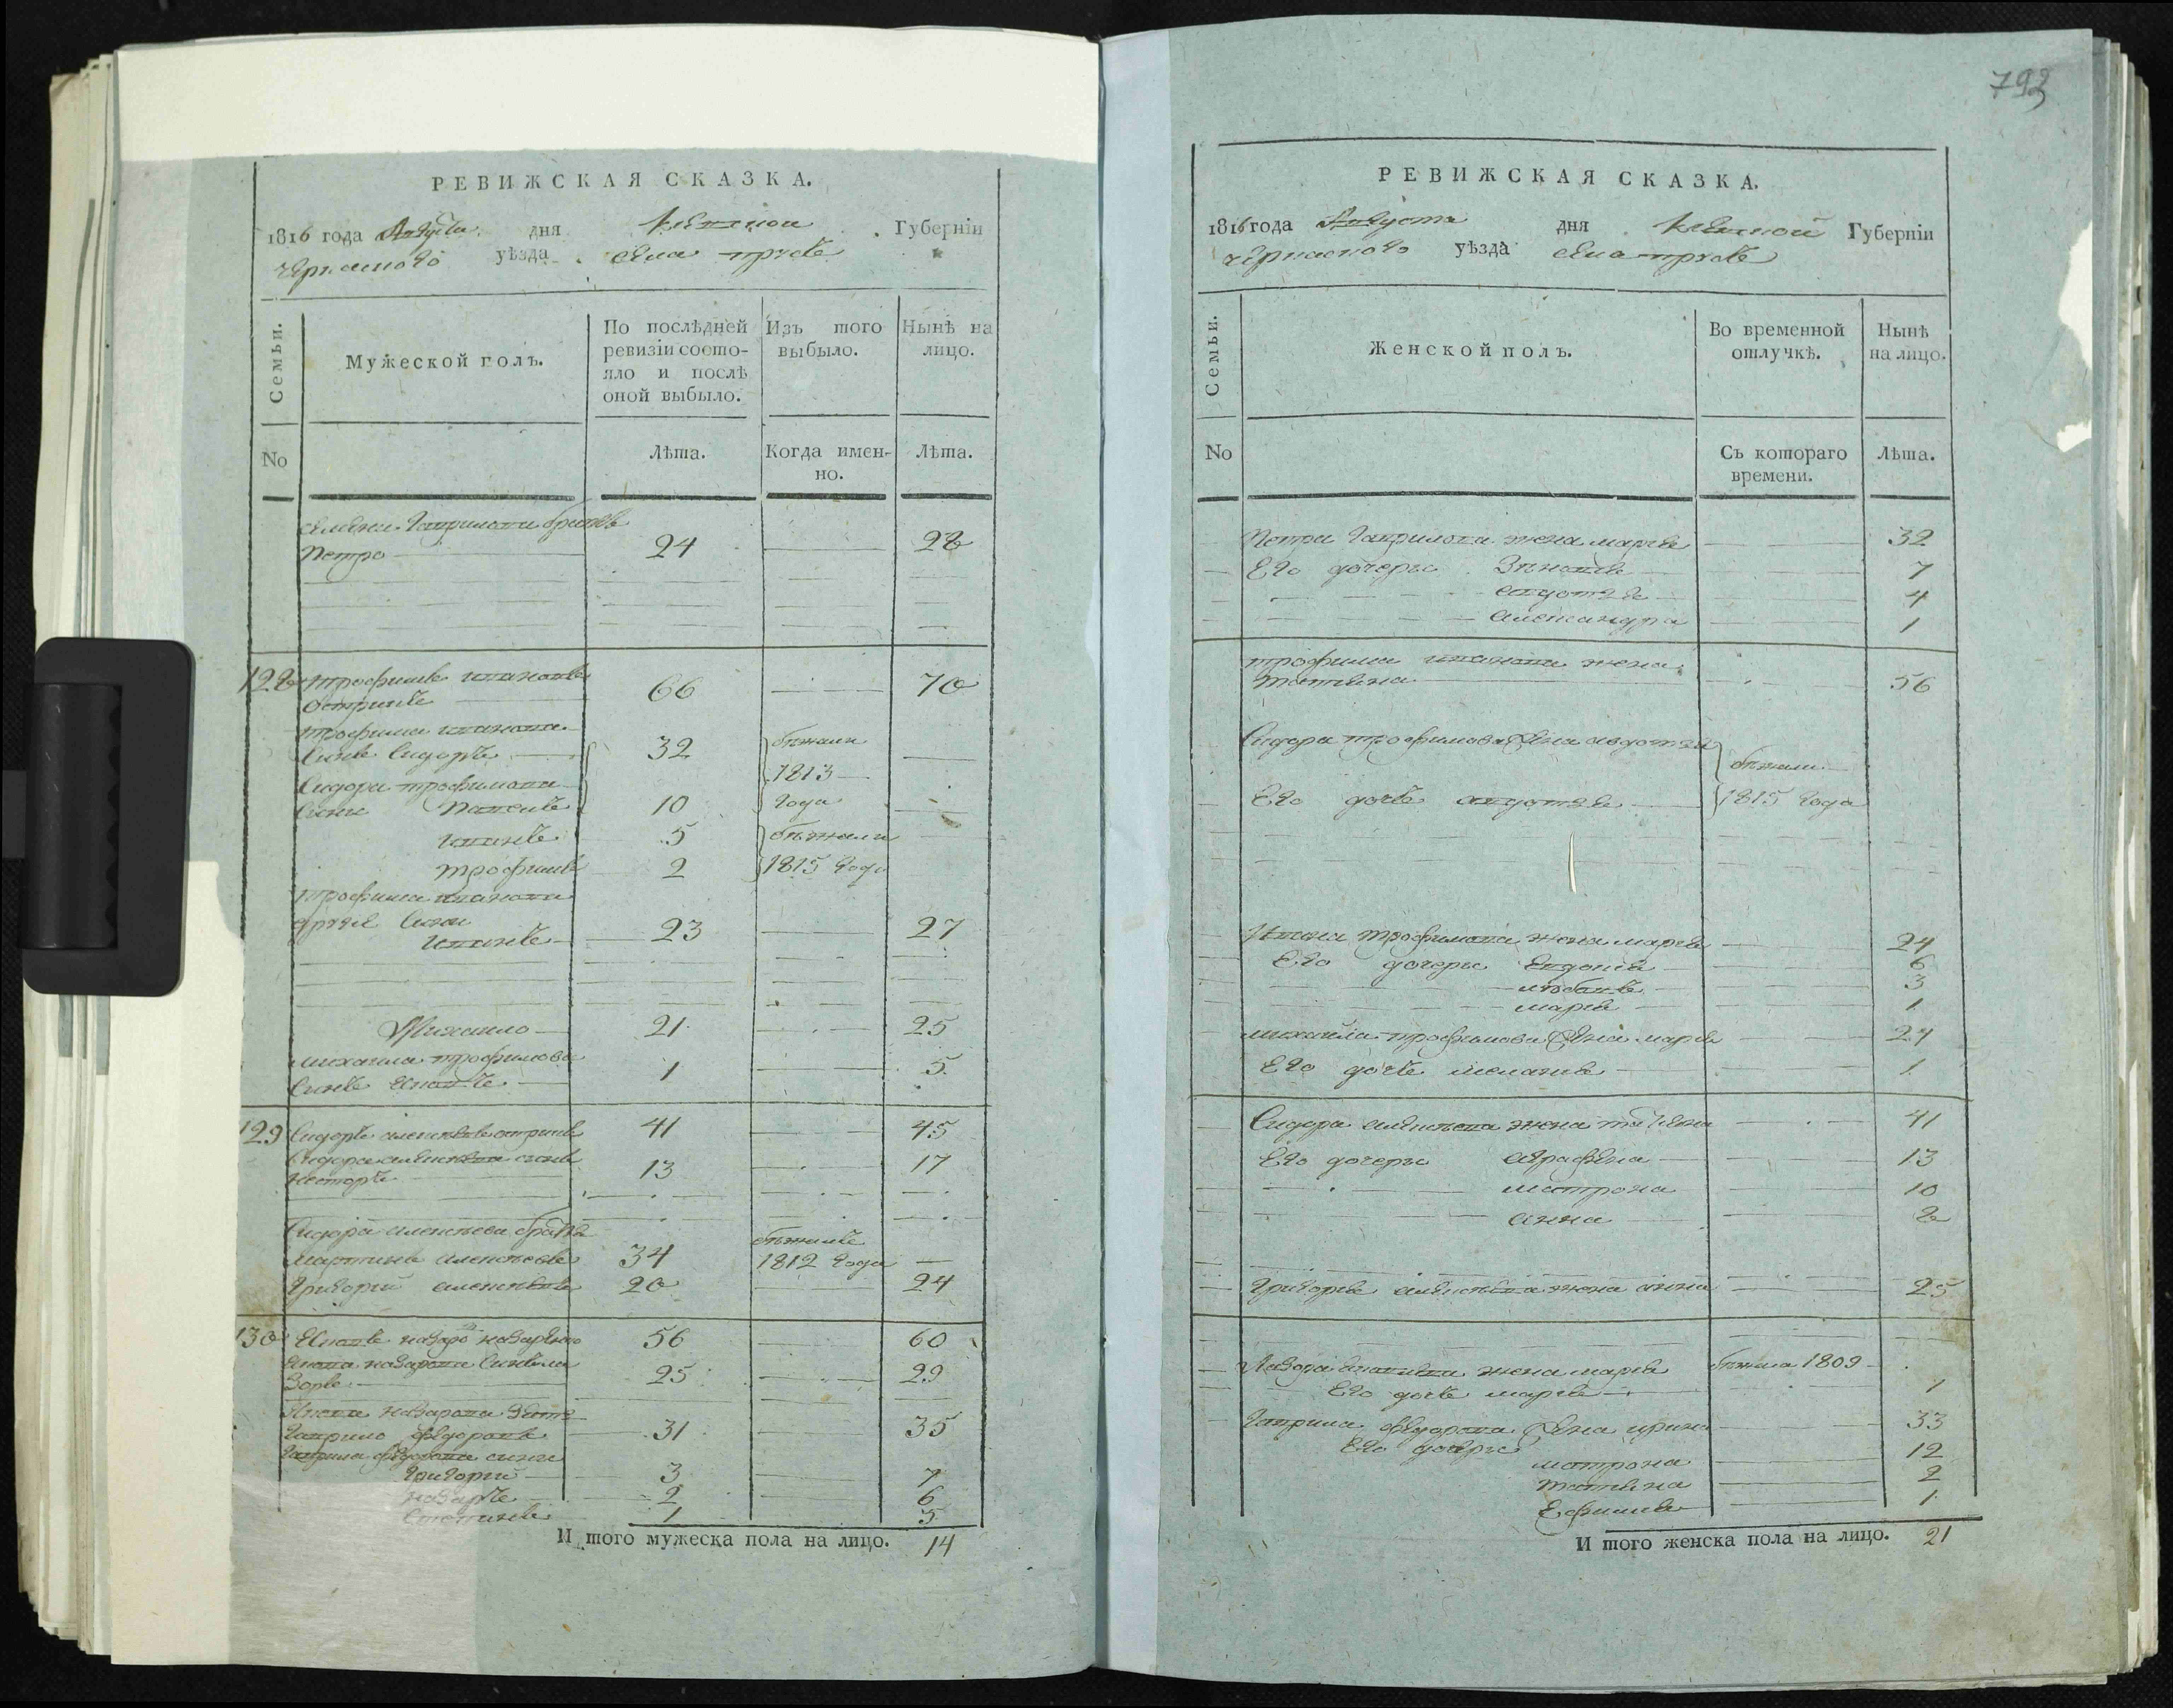 РЕВИЖСКАЯ СКАЗКА.
1816 года Августа дня Киевской Губерніи
Черкаского уѣзда села
Семьи.
Мужеской полъ.
По послѣдней ревизіи состо-
яло и послѣ
оной выбыло.
Изъ того
выбыло.
Нынѣ на
лицо.
No
Лѣта.
Когда имен-
но.
Лѣта.
Гаврилова братъ
Петро 24 28
128 Трофимъ Ивановъ 66 70
Трофима Иванова
Сынъ Сидоръ 32 бѣжали
Сидора Трофимова 1813
Сыны 10 года
Иванъ 5 бѣжали
Трофимъ 2 1815 года
Трофима Иванова
другие Сыны
Иванъ 23 27
Михайло 21 25
Михайла Трофимова
Сынъ 1 5
129 Сидоръ Алексѣевъ 41 45
Сидора Алексѣева сынъ
Несторъ 13 17
Сидора Алексѣева братья бѣжалъ
Мартинъ Алексѣевъ 34 1812 года
Григорий Алексѣевъ 20 24
130 56 60
Назарова Сынъ
25 29
Назарова
Гаврило Федоровъ 31 35
Гаврила Федорова сыны
Григорий 3 7
Назаръ 2 6
Степанъ 1 5
И того мужеска пола на лицо. 14
793
РЕВИЖСКАЯ СКАЗКА.
1816 года Августа дня Киевской Губерніи
Черкаского уѣзда села
Семьи.
Женской полъ.
Во временной
отлучкѣ.
Нынѣ
на лицо.
No
Съ котораго
времени.
Лѣта.
Петра Гаврилова жена Марья 32
Его дочеры Зѣновья 7
Авдотья 4
Александра 1
Трофима Иванова жена
Татьяна 56
Сидора Трофимова жена Авдотья бѣжали
Его дочь Авдотья 1815 года
Ивана Трофимова жена Марья 24
Его дочеры 6
3
Марья 1
Михайла Трофимова жена Марья 24
Его дочь Меланья 1
Сидора Алексѣева жена Татьяна 41
Его дочеры Аграфена 13
Матрона 10
Анна 2
Григорья Алексѣева жена Анна 25
жена Марья бѣжала 1809
Его дочь Марья 1
Гаврила Федорова жена Ирина 33
Его дочеры
Матрона 12
Татьяна 2
Ефимья 1
И того женска пола на лицо. 21